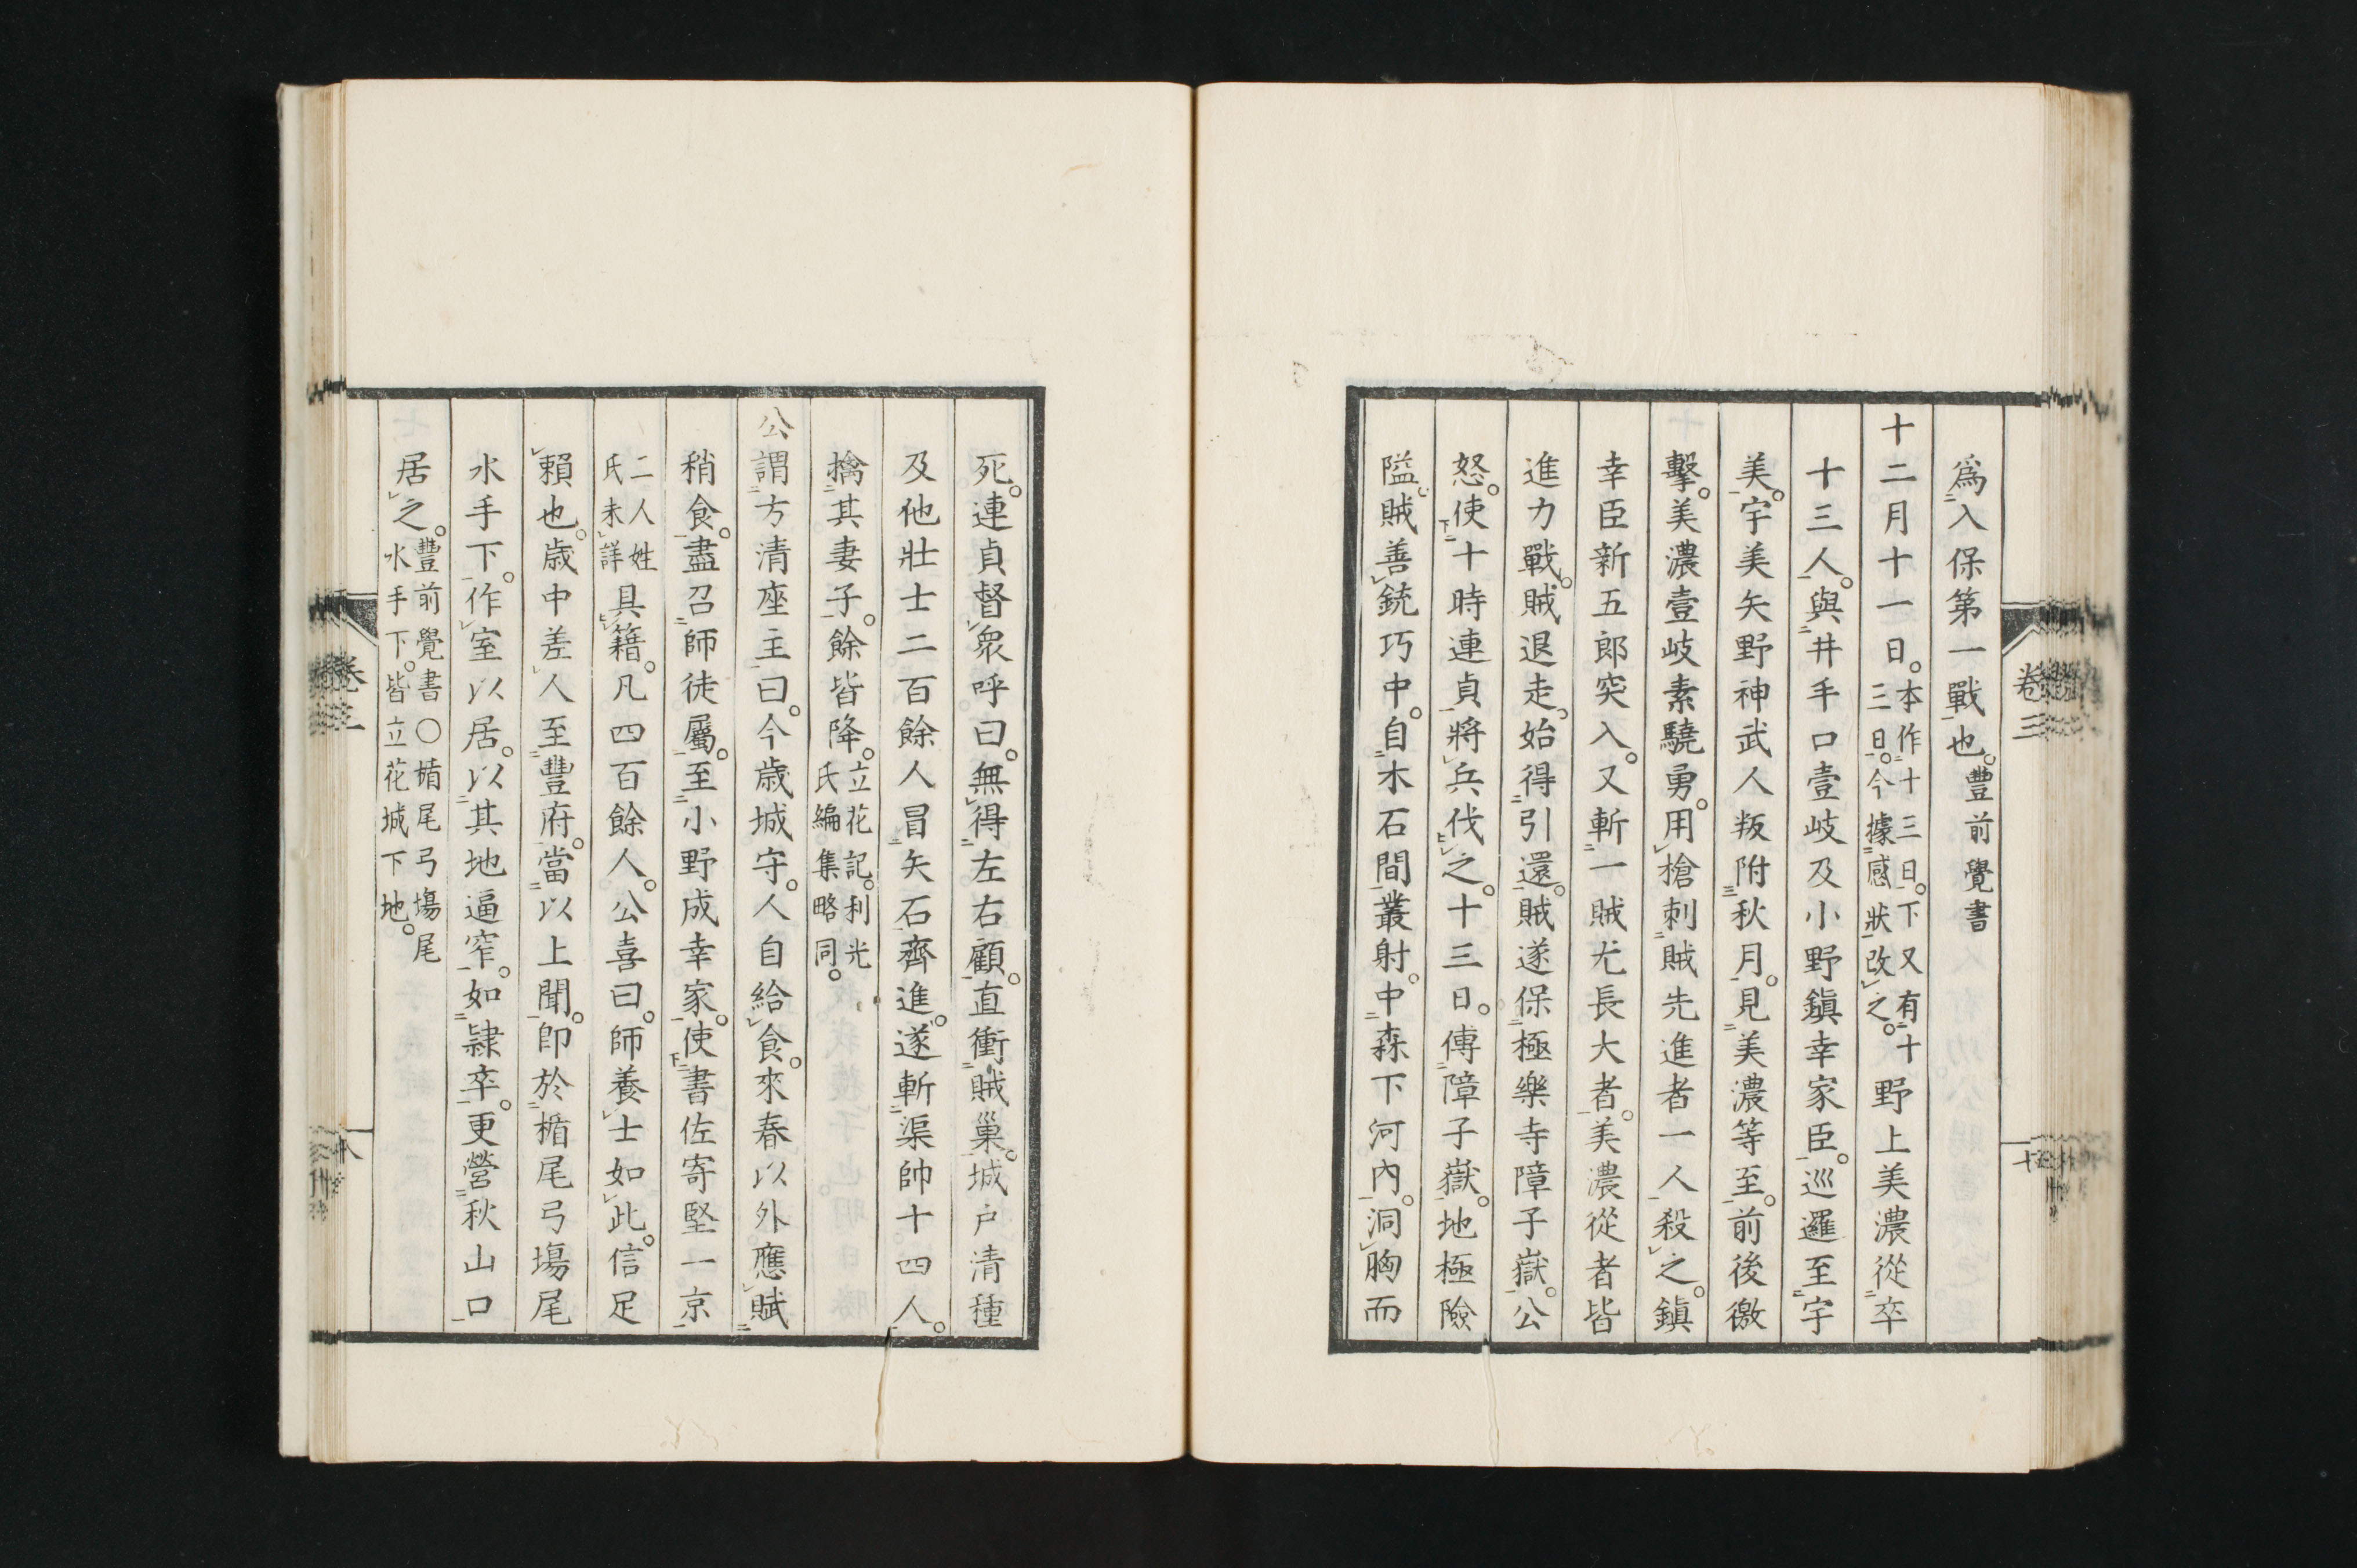 卷三
爲入保第一戰也。豐前覺書
十二月十一日。本作十三日。下又有十三日。今據感狀改之。野上美濃從卒
十三人。與井手口壹岐及小野鎭幸家臣。巡邏至宇
美。宇美矢野神武人叛附秋月。見美濃等至。前後徼
擊。美濃壹岐素驍勇。用槍刺賊先進者一人殺之。鎭
幸臣新五郎突入。又斬一賊尤長大者。美濃從者皆
進力戰。賊退走。始得引還。賊遂保極樂寺障子嶽。公
怒。使十時連貞將兵伐之。十三日。傳障子嶽。地極險
隘。賊善銃巧中。自木石間叢射。中森下河內。洞胸而
死。連貞督衆呼曰。無得左右顧。直衝賊巢。城戶清種
及他壯士二百餘人冒矢石齊進。遂斬渠帥十四人。
擒其妻子。餘皆降。立花記。利光氏編集略同。
公謂方清座主曰。今歲城守。人自給食。來春以外應賦
稍食。盡召師徒屬。至小野成幸家。使書佐寄堅一京
二人姓氏未詳具籍。凡四百餘人。公喜曰。師養士如此。信足
賴也。歲中差人至豐府。當以上聞。卽於楯尾弓場尾
水手下。作室以居。以其地逼窄。如隷卒。更營秋山口
居之。豐前覺書〇楯尾弓場尾水手下。皆立花城下地。
卷三